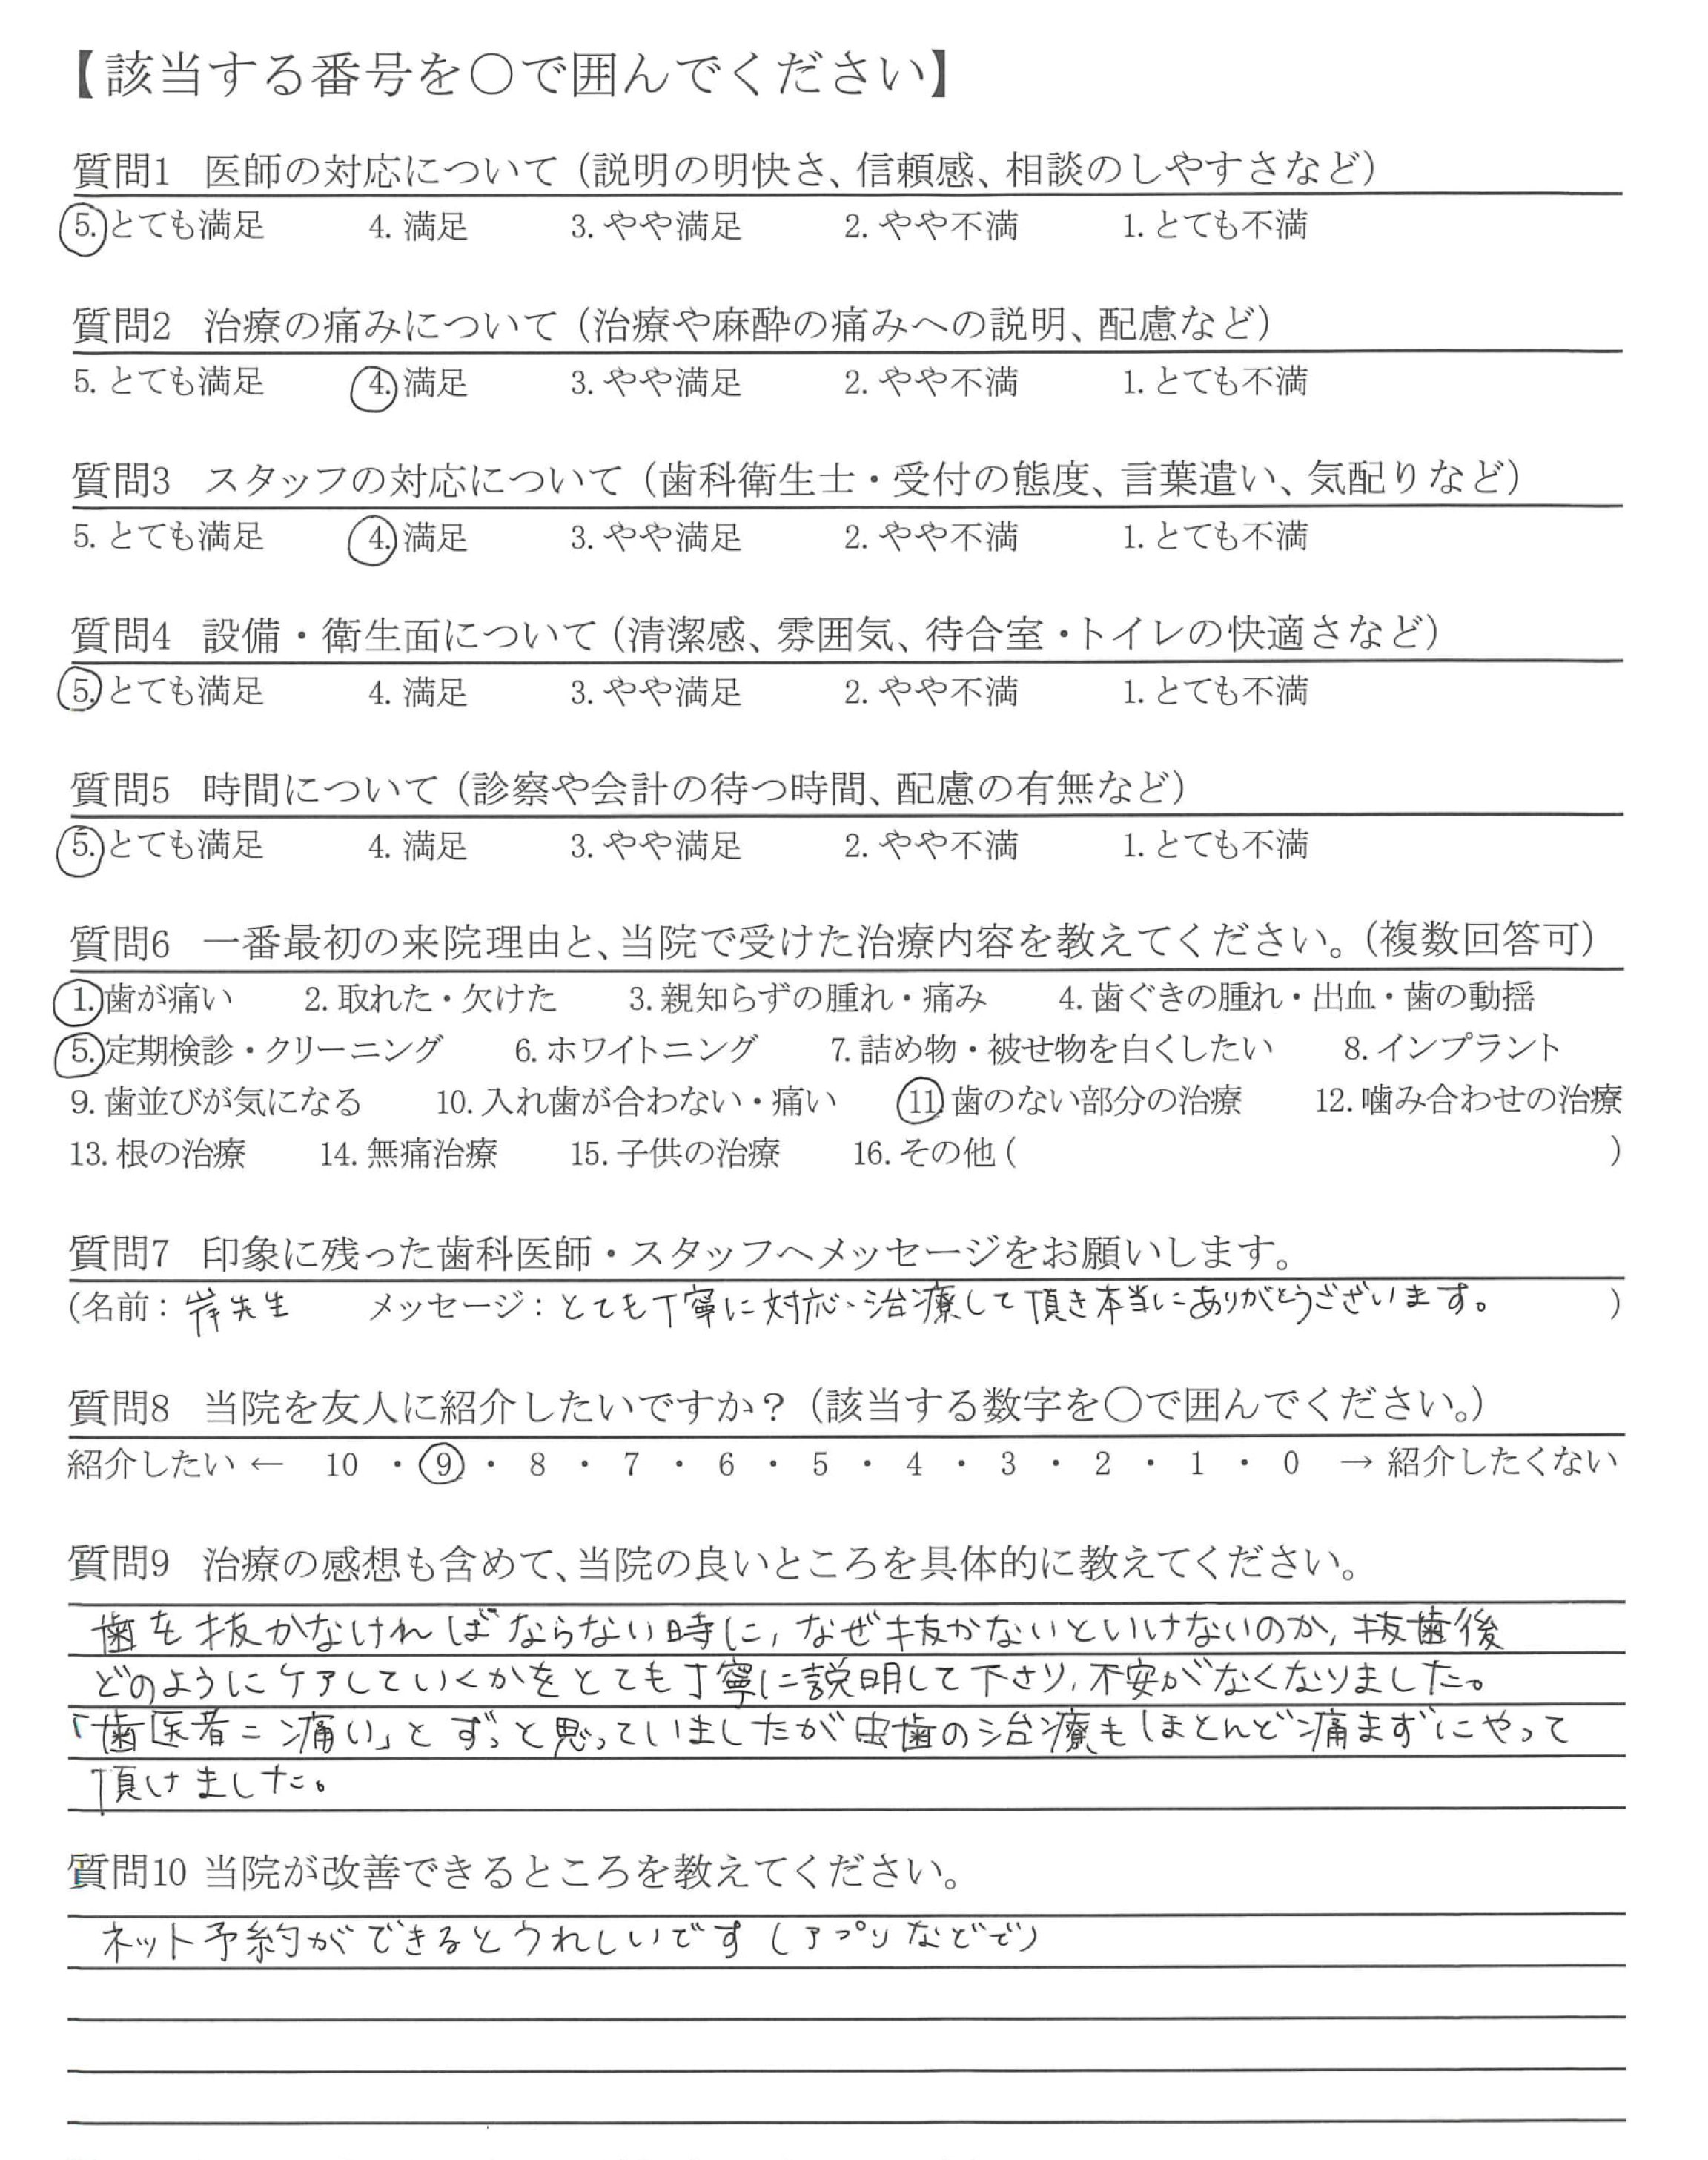 【該当する番号を〇で囲んでください】
質問1 医師の対応について（説明の明快さ、信頼感、相談のしやすさなど）
5. とても満足 4. 満足 3. やや満足 2. やや不満 1. とても不満
質問2 治療の痛みについて（治療や麻酔の痛みへの説明、配慮など）
5. とても満足 4. 満足 3. やや満足 2. やや不満 1. とても不満
質問3 スタッフの対応について（歯科衛生士・受付の態度、言葉遣い、気配りなど）
5. とても満足 4. 満足 3. やや満足 2. やや不満 1. とても不満
質問4 設備・衛生面について（清潔感、雰囲気、待合室・トイレの快適さなど）
5. とても満足 4. 満足 3. やや満足 2. やや不満 1. とても不満
質問5 時間について（診察や会計の待つ時間、配慮の有無など）
5. とても満足 4. 満足 3. やや満足 2. やや不満 1. とても不満
質問6 一番最初の来院理由と、当院で受けた治療内容を教えてください。（複数回答可）
1. 歯が痛い 2. 取れた・欠けた 3. 親知らずの腫れ・痛み 4. 歯ぐきの腫れ・出血・歯の動揺
5. 定期検診・クリーニング 6. ホワイトニング 7. 詰め物・被せ物を白くしたい 8. インプラント
9. 歯並びが気になる 10. 入れ歯が合わない・痛い 11. 歯のない部分の治療 12. 噛み合わせの治療
13. 根の治療 14. 無痛治療 15. 子供の治療 16. その他（ ）
質問7 印象に残った歯科医師・スタッフへメッセージをお願いします。
（名前：岸先生 メッセージ：とても丁寧に対応、治療して頂き本当にありがとうございます。 ）
質問8 当院を友人に紹介したいですか？（該当する数字を〇で囲んでください。）
紹介したい ← 10 ・ 9 ・ 8 ・ 7 ・ 6 ・ 5 ・ 4 ・ 3 ・ 2 ・ 1 ・ 0 → 紹介したくない
質問9 治療の感想も含めて、当院の良いところを具体的に教えてください。
歯を抜かなければならない時に，なぜ抜かないといけないのか，抜歯後
どのようにケアしていくかをとても丁寧に説明して下さり，不安がなくなりました。
「歯医者＝痛い」とずっと思っていましたが虫歯の治療もほとんど痛まずにやって
頂けました。
質問10 当院が改善できるところを教えてください。
ネット予約ができるとうれしいです（アプリなどで）